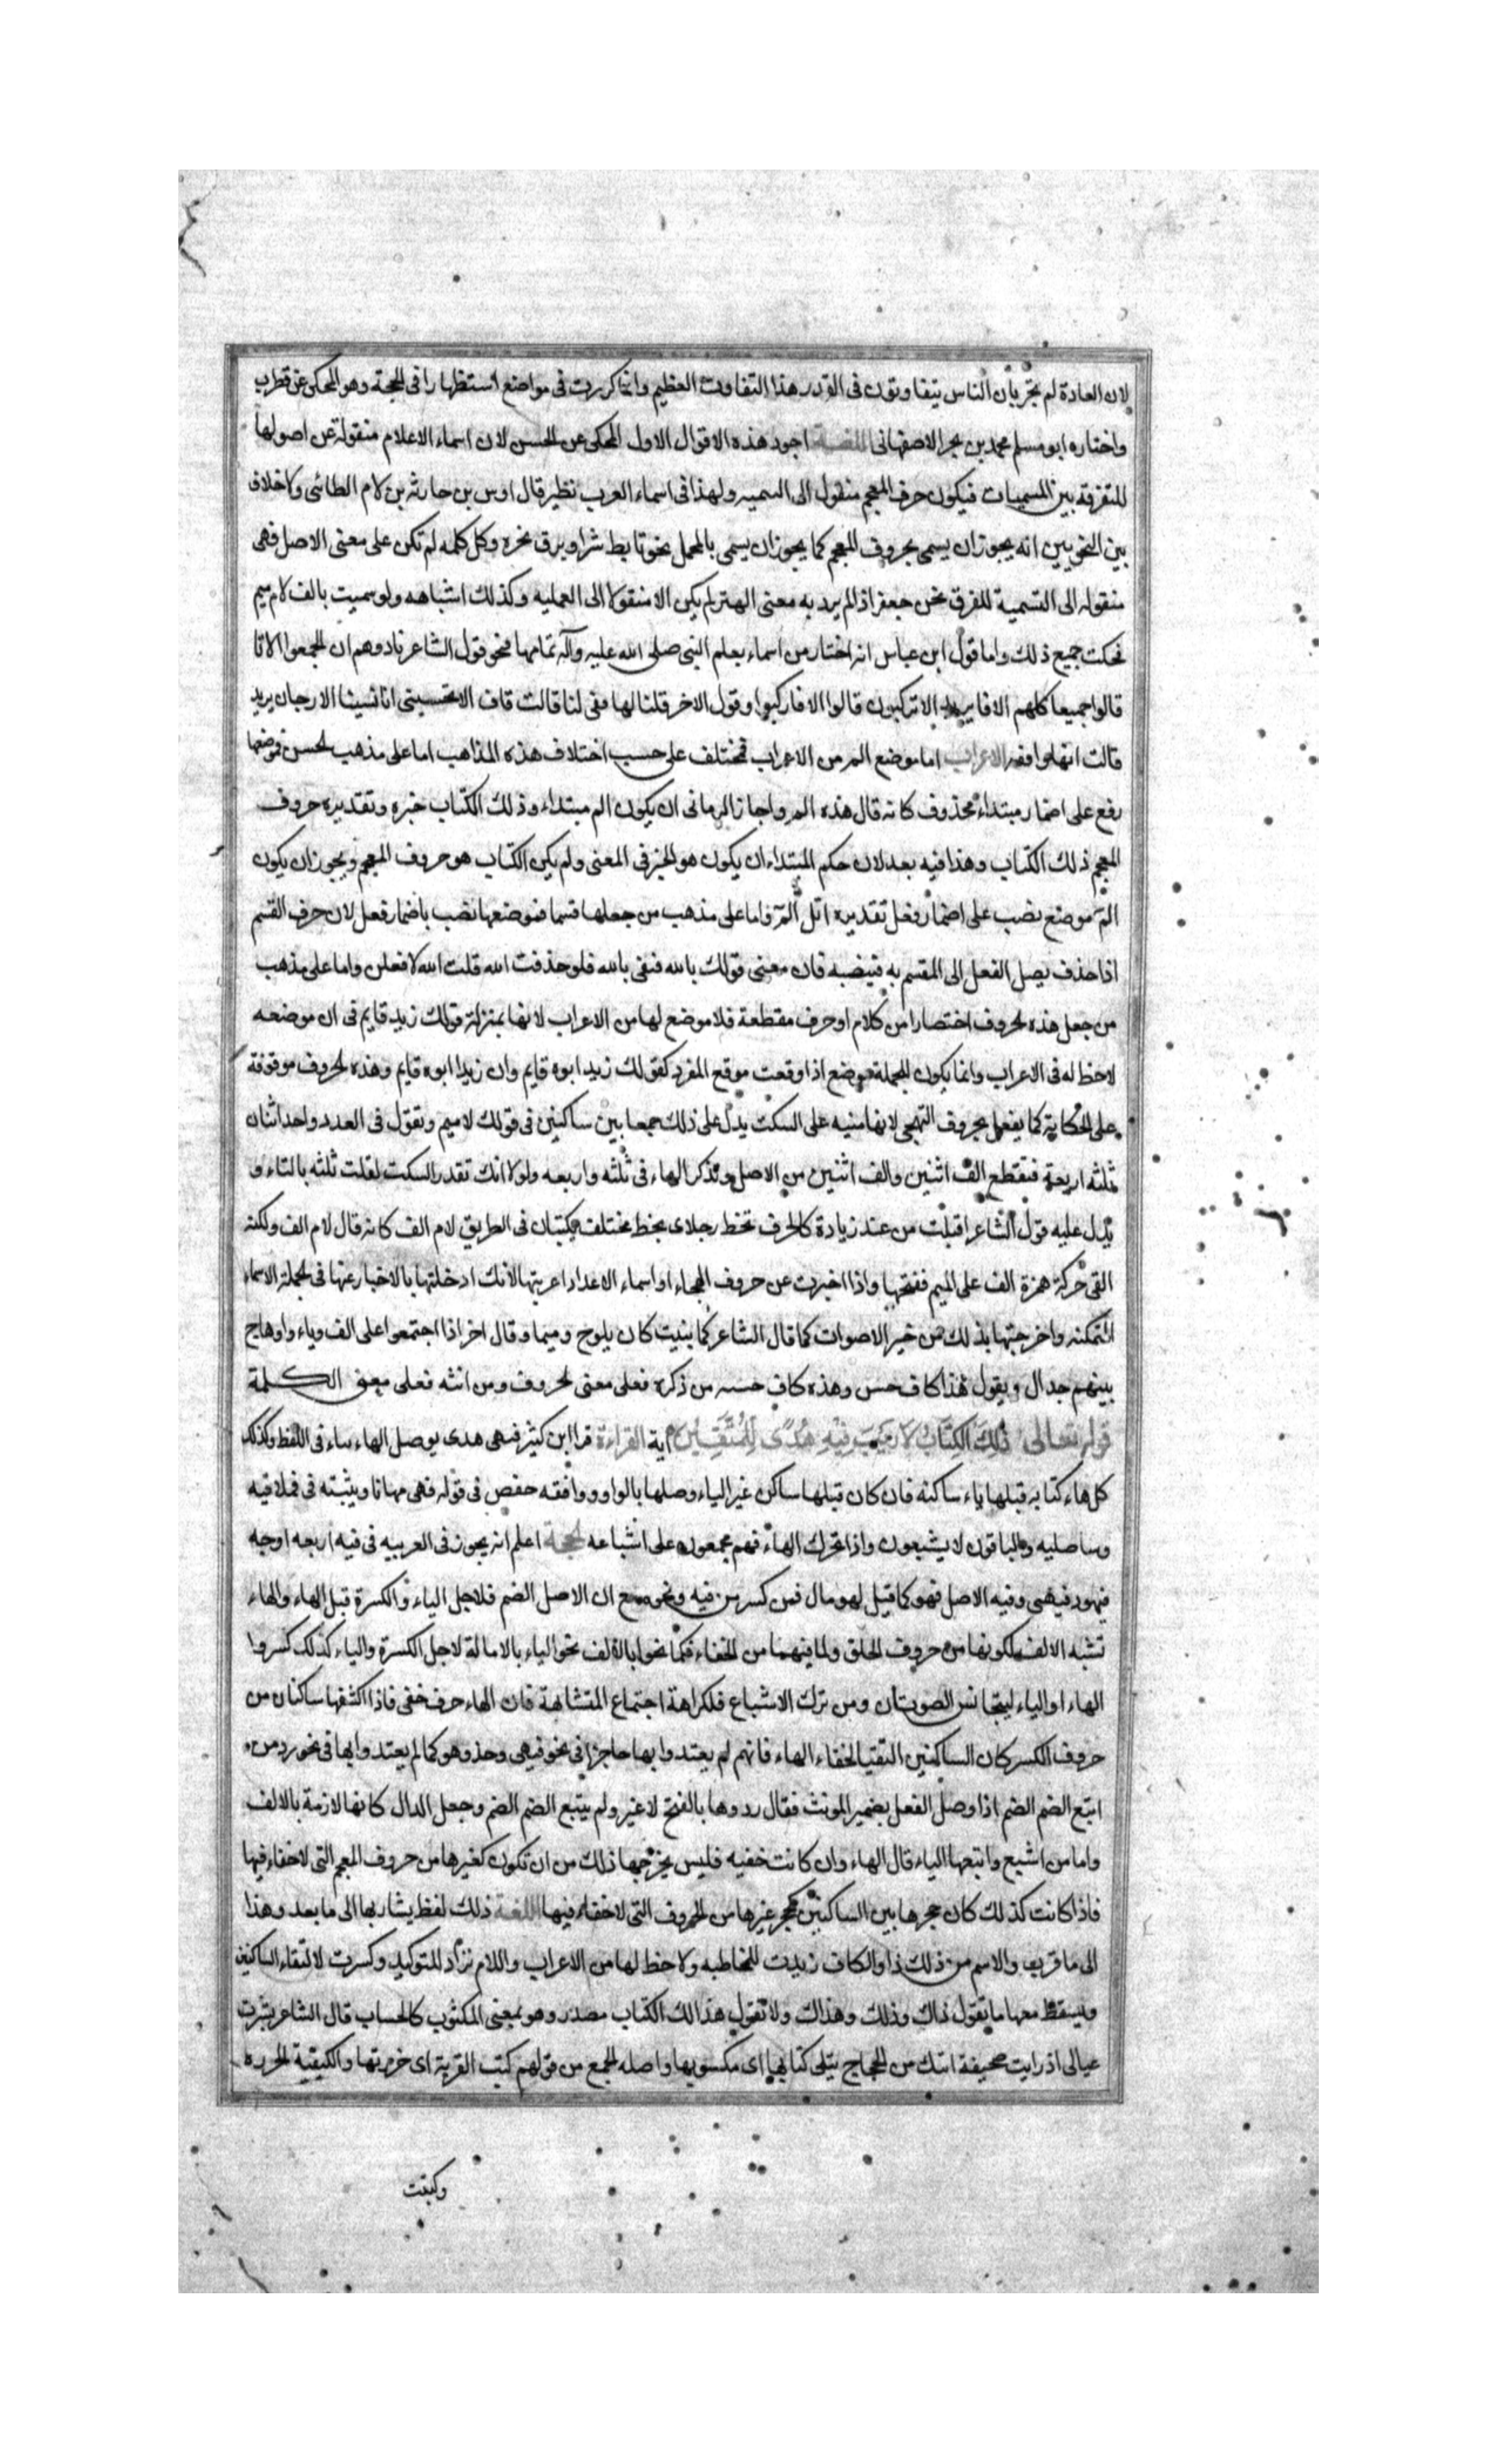 لان العادة لم تجر بان الناس يتفاوتون فى القدر هذا التفاوت العظيم وانما كررت فى مواضع استظهارا فى الحجة وهو المحكى عن قطرب
واختاره ابو مسلم محمد بن بحر الاصفهانى اللغة اجود هذه الاقوال الاول المحكى عن الحسن لان اسماء الاعلام منقولة عن اصولها
للتفرقة بين المسميات فيكون حرف المعجم منقول الى التسميه ولهذا فى اسماء العرب نظير قال اوس بن حارثه بن لام الطائى ولا خلاف
بين النحويين انه يجوز ان يسمى بحروف المعجم كما يجوز ان يسمى بالجمل نحو تابط شرا وبرق نحره وكل كلمه لم تكن على معنى الاصل فهى
منقوله الى التسمية للفرق نحو جعفر اذا لم يرد به معنى النهر لم يكن الا منقولا الى العلميه وكذلك اشباهه ولو سميت بالف لام ميم
لحكت جميع ذلك واما قول ابن عباس انه اختار من اسماء يعلم النبى صلى الله عليه وآله تمامها فنحو قول الشاعر نادوهم ان الجموا الا تا
قالوا جميعا كلهم الا فا يريد الا تركبون قالوا الا فاركبوا وقول الاخر قلنا لها قفى لنا قالت قاف لا تحسبنى انا نسينا الارجان يريد
قالت انها واقفه الاعراب اما موضع الم من الاعراب فمختلف على حسب اختلاف هذه المذاهب اما على مذهب الحسن فموضعها
رفع على اضمار مبتداء محذوف كانه قال هذه الم واجاز الرمانى ان يكون الم مبتداء وذلك الكتاب خبره وتقديره حروف
المعجم ذلك الكتاب وهذا فيه بعد لان حكم المبتداء ان يكون هو الخبر فى المعنى ولم يكن الكتاب هو حروف المعجم ويجوز ان يكون
الم موضع نصب على اضمار فعل تقديره اتل الم واما على مذهب من جعلها قسما فموضعها نصب باضمار فعل لان حرف القسم
اذا حذف يصل الفعل الى المقسم به فينصبه فان معنى قولك بالله فنفى بالله فلو حذفت الله قلت الله لافعلن واما على مذهب
من جعل هذه الحروف اختصارا من كلام او حرف مقطعة فلا موضع لها من الاعراب لانها بمنزلة قولك زيد قايم فى ان موضعه
لا حظ له فى الاعراب وانما يكون للجملة موضع اذا وقعت موقع المفرد كقولك زيد ابوه قايم وان زيدا ابوه قايم وهذه الحروف موقوفة
على الحكاية كما يفعل بحروف التهجى لانها مبنيه على السكت يدل على ذلك جمعها بين ساكنين فى قولك لام ميم وتقول فى العدد واحد اثنان
ثلثه اربعة فتقطع الف اثنين والف اثنين من الاصل وتذكر الهاء فى ثلثه واربعه ولولا انك تقدر السكت لقلت ثلثه بالتاء و
يدل عليه قول الشاعر اقبلت من عند زيادة كالخرف تخط رجلاى بخط مختلف يكتبان فى الطريق لام الف كانه قال لام الف ولكنه
القى حركة همزة الف على الميم ففتحها واذا اخبرت عن حروف الهجاء او اسماء الاعداد اعربتها لانك ادخلتها بالاخبار عنها فى جملة الاسماء
المتمكنه واخرجتها بذلك من خير الاصوات كما قال الشاعر كما بنيت كان يلوح وميما وقال اخر اذا اجتمعوا على الف وياء واو هاج
بينهم جدال ويقول هذا كاف حسن وهذه كاف حسنه من ذكره فعلى معنى الحروف ومن انثه فعلى معنى الكلمة
قوله تعالى ذلك الكتاب لا ريب فيه هدى للمتقين آية القراءة قرا ابن كثير فيهى هدى يوصل الهاء بياء فى اللفظ وكذلك
كل هاء كنايه قبلها ياء ساكنه فان كان قبلها ساكن غير الياء وصلها بالواو ووافقه حفص فى قوله فهى مهانا ويثبته فى فملاقيه
وساصليه والباقون لا يشبعون واذا تحرك الهاء فهم مجمعون على اشباعه الحجة اعلم انه يجوز فى العربيه فى فيه اربعه اوجه
فيهو وفيهى وفيه الاصل فهو كما قيل لهو مال فمن كسر من فيه ونحوه مع ان الاصل الضم فلاجل الياء والكسرة قبل الهاء والهاء
تشبه الالف لكونها من حروف الحلق ولما فيهما من الخفاء فكما نحوا بالالف نحو الياء بالامالة لاجل الكسرة والياء كذلك كسروا
الهاء او الياء ليتجانس الصوتان ومن ترك الاشباع فلكراهة اجتماع المتشابهة فان الهاء حرف خفى فاذا اكتنفها ساكنان من
حروف الكسر كان الساكنين التقيا لخفاء الهاء فانهم لم يعتدوا بها حاجزا فى نحو فيهى وحذوهو كما لم يعتدوا بها فى نحو رد من
اتبع الضم الضم اذا وصل الفعل بضمير المونث فقال ردوها بالفتح لا غير ولم يتبع الضم الضم وجعل الدال كانها لازمة بالالف
واما من اشبع واتبعها الياء قال الهاء وان كانت خفيه فليس يخرجها ذلك من ان تكون كغيرها من حروف المعجم التى لا خفاء فيها
فاذا كانت كذلك كان حجزها بين الساكنين كحجز غيرها من الحروف التى لا خفاء فيها اللغة ذلك لفظ يشار بها الى ما بعد وهذا
الى ما قرب والاسم من ذلك ذا والكاف زيدت للمخاطبه ولا حظ لها من الاعراب واللام تزاد للتوكيد وكسرت لالتقاء الساكنين
ويسقط معها ما يقول ذاك وذلك وهذاك ولا تقول هذالك الكتاب مصدر وهو بمعنى المكتوب كالحساب قال الشاعر بشرت
عيالى اذ رايت صحيفة اتتك من الحجاج يتلى كتابها اى مكتوبها واصله الجمع من قولهم كتبت القربة اى خرزتها والكتيبة الخرزه
وكتبت